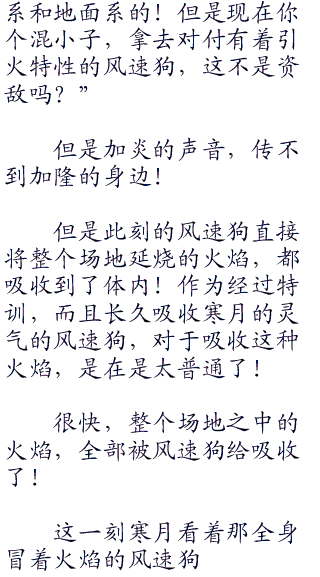 系和地面系的！但是现在你
个混小子，拿去对付有着引
火特性的风速狗，这不是资
敌吗？”
但是加炎的声音，传不
到加隆的身边！
但是此刻的风速狗直接
将整个场地延烧的火焰，都
吸收到了体内！作为经过特
训，而且长久吸收寒月的灵
气的风速狗，对于吸收这种
火焰，是在是太普通了！
很快，整个场地之中的
火焰，全部被风速狗给吸收
了！
这一刻寒月看着那全身
冒着火焰的风速狗